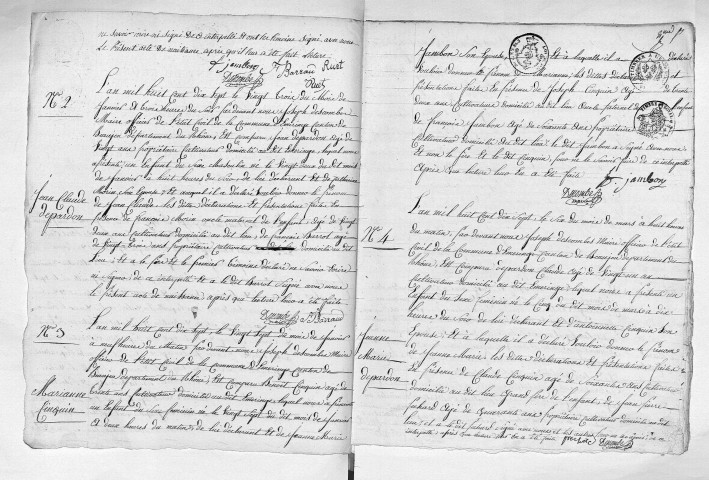 ne savoir écrire ni signé de ce interpellé et ont les témoins signé avec nous
Le présent acte de naissance, après qu'il leur a été fait lecture
f. jambon Barraud Ruet
Desombre
N.° 2
L'an mil huit cent dix sept le Vingt trois du mois de
janvier à trois heures du soir pardevant nous Joseph desombre
Maire officier de l'état civil de la Commune d'émeringe canton de
Beaujeu département du Rhône, Est comparu depardon agé de
Vingt ans propriétaire cultivateur domicilié en émeringe lequel nous a
présenté un enfant du sexe Masculin né le Vingt deux du dit mois
de janvier à huit heures du soir de lui déclarant et de
Morin son épouse et auquel il a déclaré Vouloir donner le prénom
de Jean Claude les dites déclarations et présentations faites en
présence de françois Morin oncle maternel de l'enfant agé de Vingt
deux ans cultivateur domicilié au dit lieu de françois Barrot agé
de Vingt trois ans propriétaire cultivateur domicilié au dit
Lieu et a le père et le premier témoin déclaré ne savoir écrire
ni signer de ce interpellé et a le dit Barrot signé avec nous
le présent acte de naissance après que lecture leur a été faite
Desombre
Jean Claude
depardon
N.° 3
L'an mil huit cent dix sept le Vingt sept du mois de janvier
à neuf heures du matin pardevant nous Joseph desombre Maire
officier de l'état civil de la Commune d'émeringe Canton de
Beaujeu département du Rhône, est comparu Benoit Cinquin agé de
trente ans cultivateur domicilié au dit émeringe lequel nous a présenté
un enfant du sexe féminin né le Vingt sept du dit mois de janvier
à deux heures du matin, de lui déclarant et de jeanne Marie
Marianne
Cinquin
jambon son épouse et à laquelle il a déclaré
Vouloir donner le prénom de Marianne, les dites déclarations et
présentations faites en présence de joseph Cinquin agé de trente
deux ans cultivateur domicilié au dit lieu oncle paternel de l'enfant
de françois jambon agé de soixante ans propriétaire
Cultivateur domicilié au dit lieu le dit jambon a signé avec nous
et non le père et le dit Cinquin pour ne le savoir faire de ce interpellé
Après que lecture leur en a été faite
f. jambon
Desombre
N.° 4
L'an mil huit cent dix sept le six du mois de mars à huit heures
du matin, pardevant nous Joseph desombre Maire officier de l'état
civil de la Commune d'émeringe Canton de Beaujeu département du
Rhône, est comparu depardon Claude agé de Vingt un an
cultivateur domicilié au dit émeringe, lequel nous a présenté un
Enfant du sexe féminin né le Cinq du dit mois de mars à dix
heures du soir de lui déclarant et d'antoinette Cinquin son
épouse et à laquelle il a déclaré Vouloir donner le prénom
de jeanne Marie les dites déclarations et présentations faites en
présence de Claude Cinquin agé de soixante ans cultivateur
domicilié au dit lieu grand père de l'enfant, de jean pierre
pichard agé de quarante ans propriétaire cultivateur domicilié au dit
lieu et a le dit pichard signé avec nous et les autres
interpellé après que lecture leur en a été faite
Desombre
Jeanne
Marie
depardon